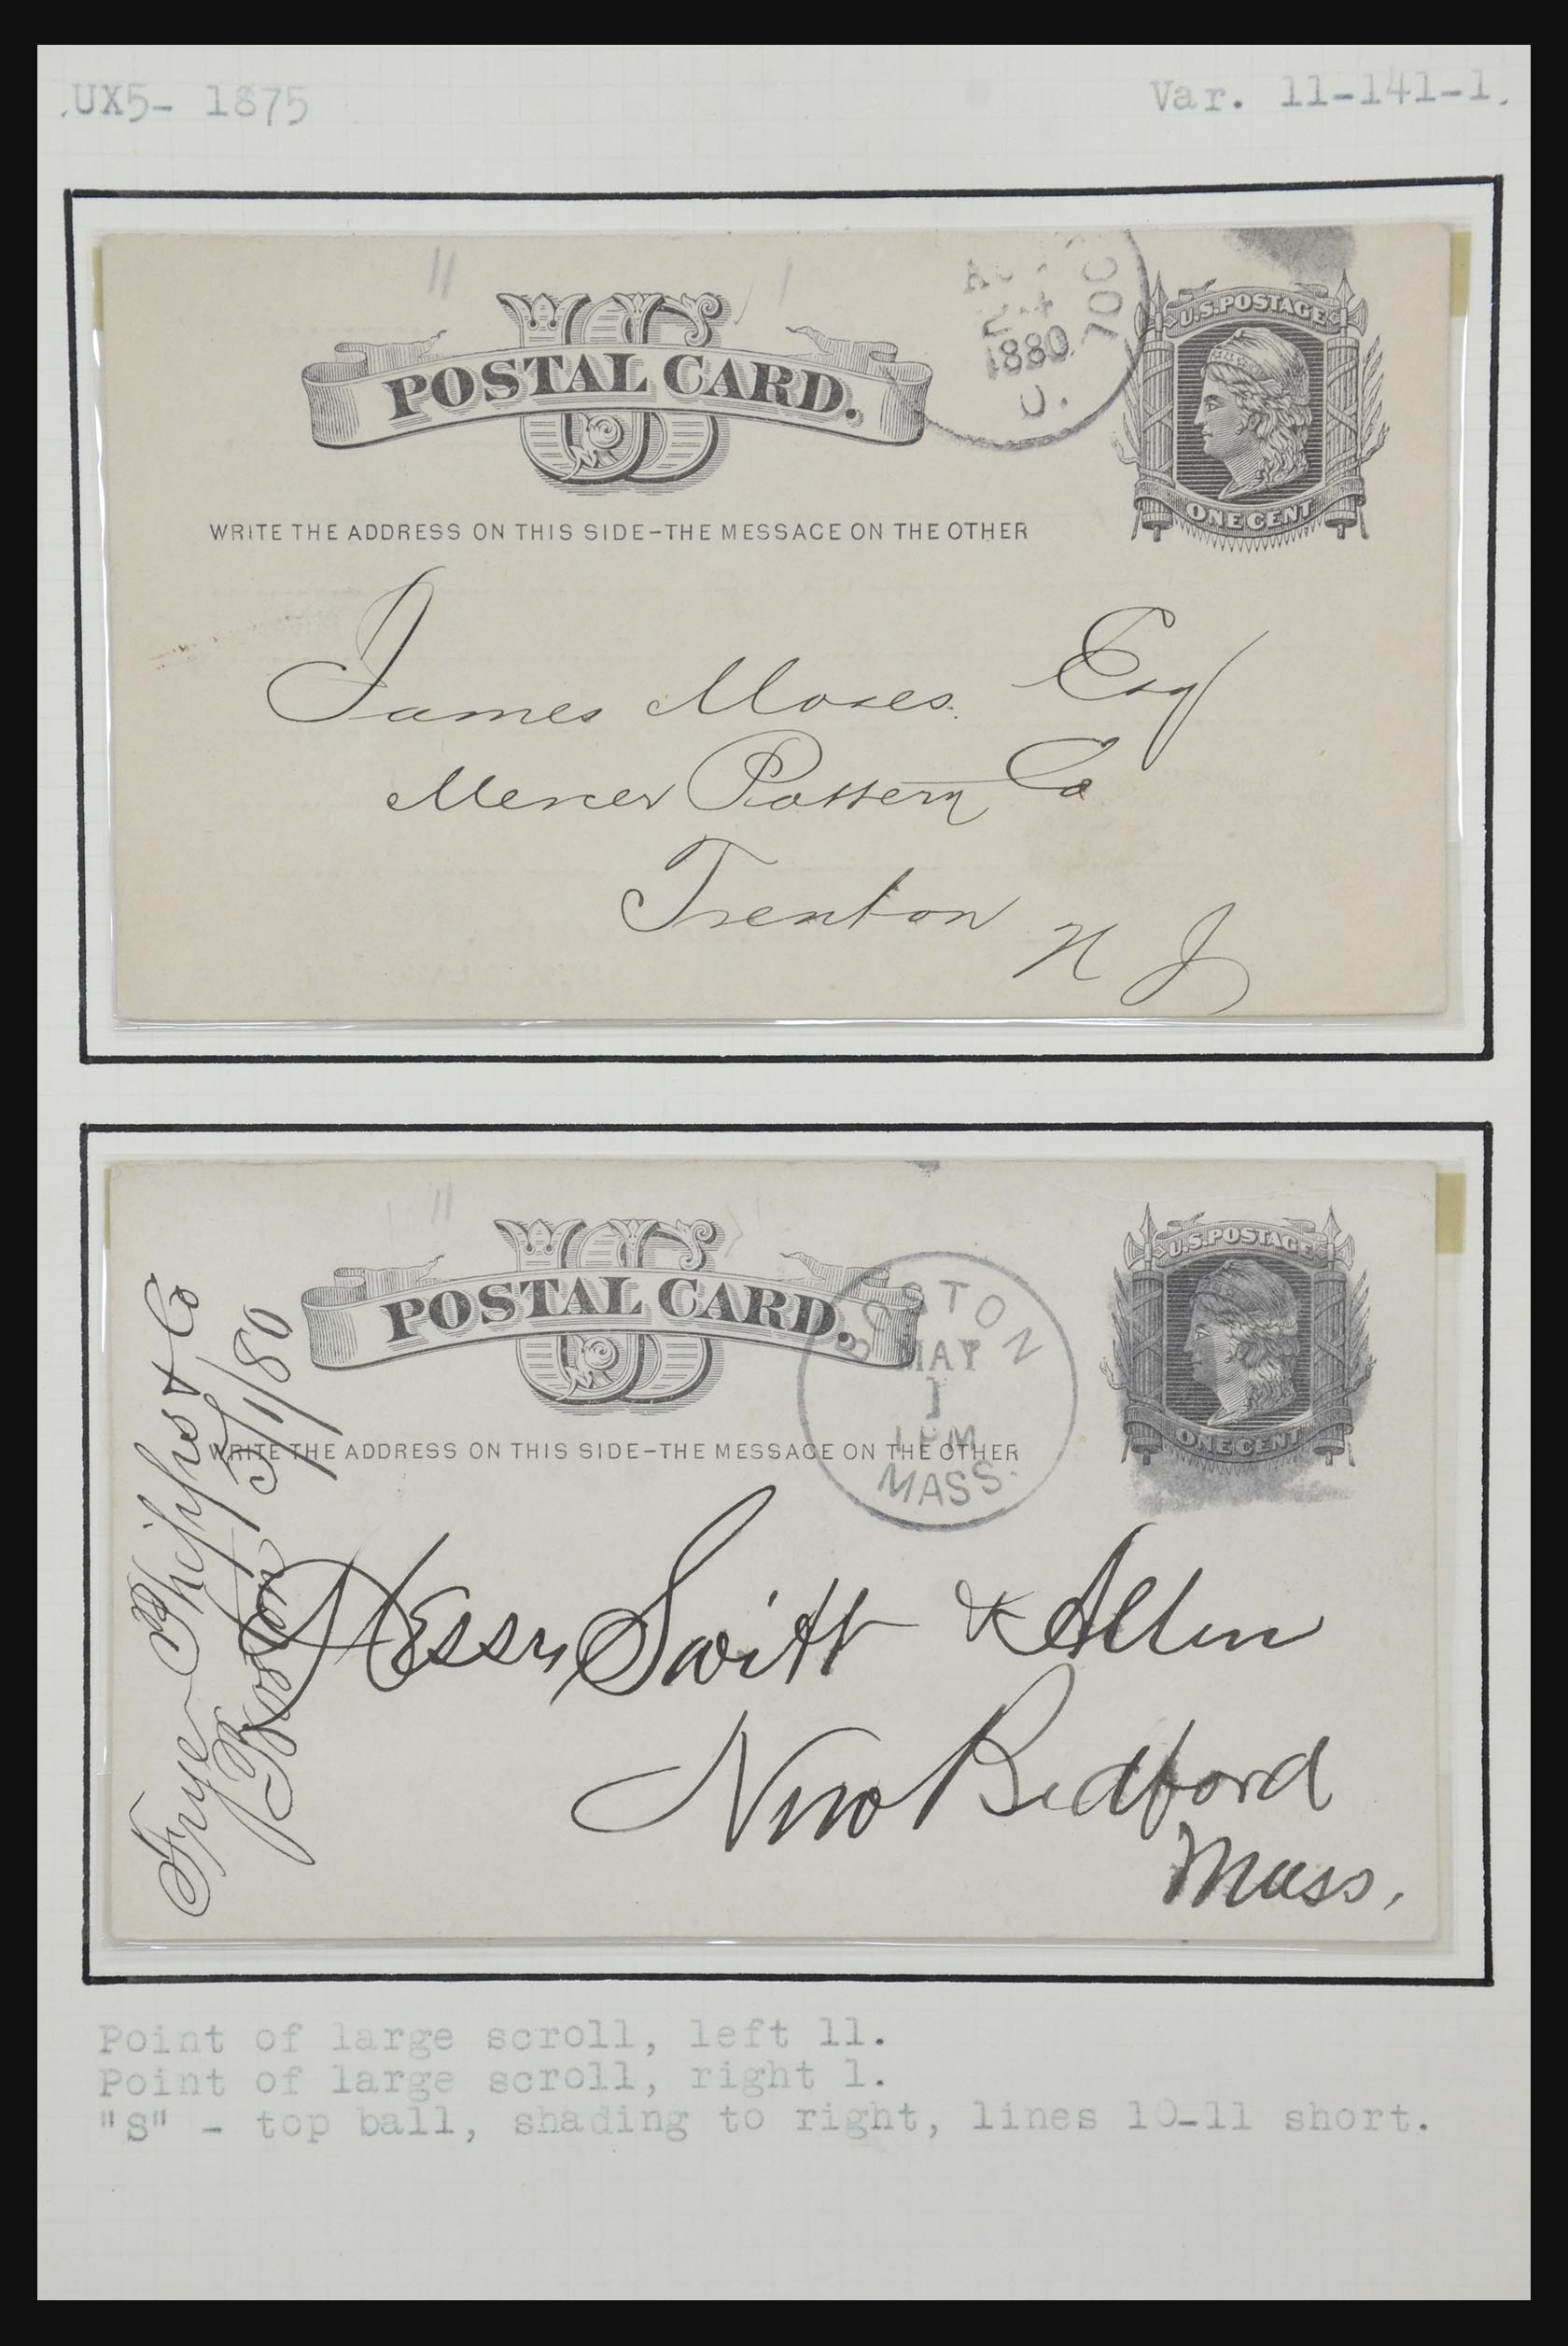 UX5- 1875
Var. 11-141-1.
11
1
24
1880
O.
U.S.POSTAGE
POSTAL CARD.
ONE CENT
WRITE THE ADDRESS ON THIS SIDE-THE MESSAGE ON THE OTHER
James Moses. Esq
Mercer Pottery Co
Trenton N J
11
U.S.POSTAGE
POSTAL CARD.
ONE CENT
BOSTON
MAY
1
1PM
MASS.
WRITE THE ADDRESS ON THIS SIDE-THE MESSAGE ON THE OTHER
Frye Phipps & Co
Boston 5/1/80
Messrs Swift & Allen
New Bedford
Mass.
Point of large scroll, left 11.
Point of large scroll, right 1.
"S" - top ball, shading to right, lines 10-11 short.